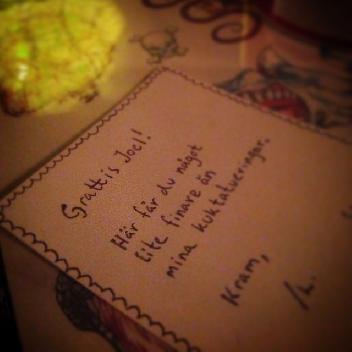 Grattis Joel!
Här får du något
lite finare än
mina kuktatueringar.
Kram,
/L.